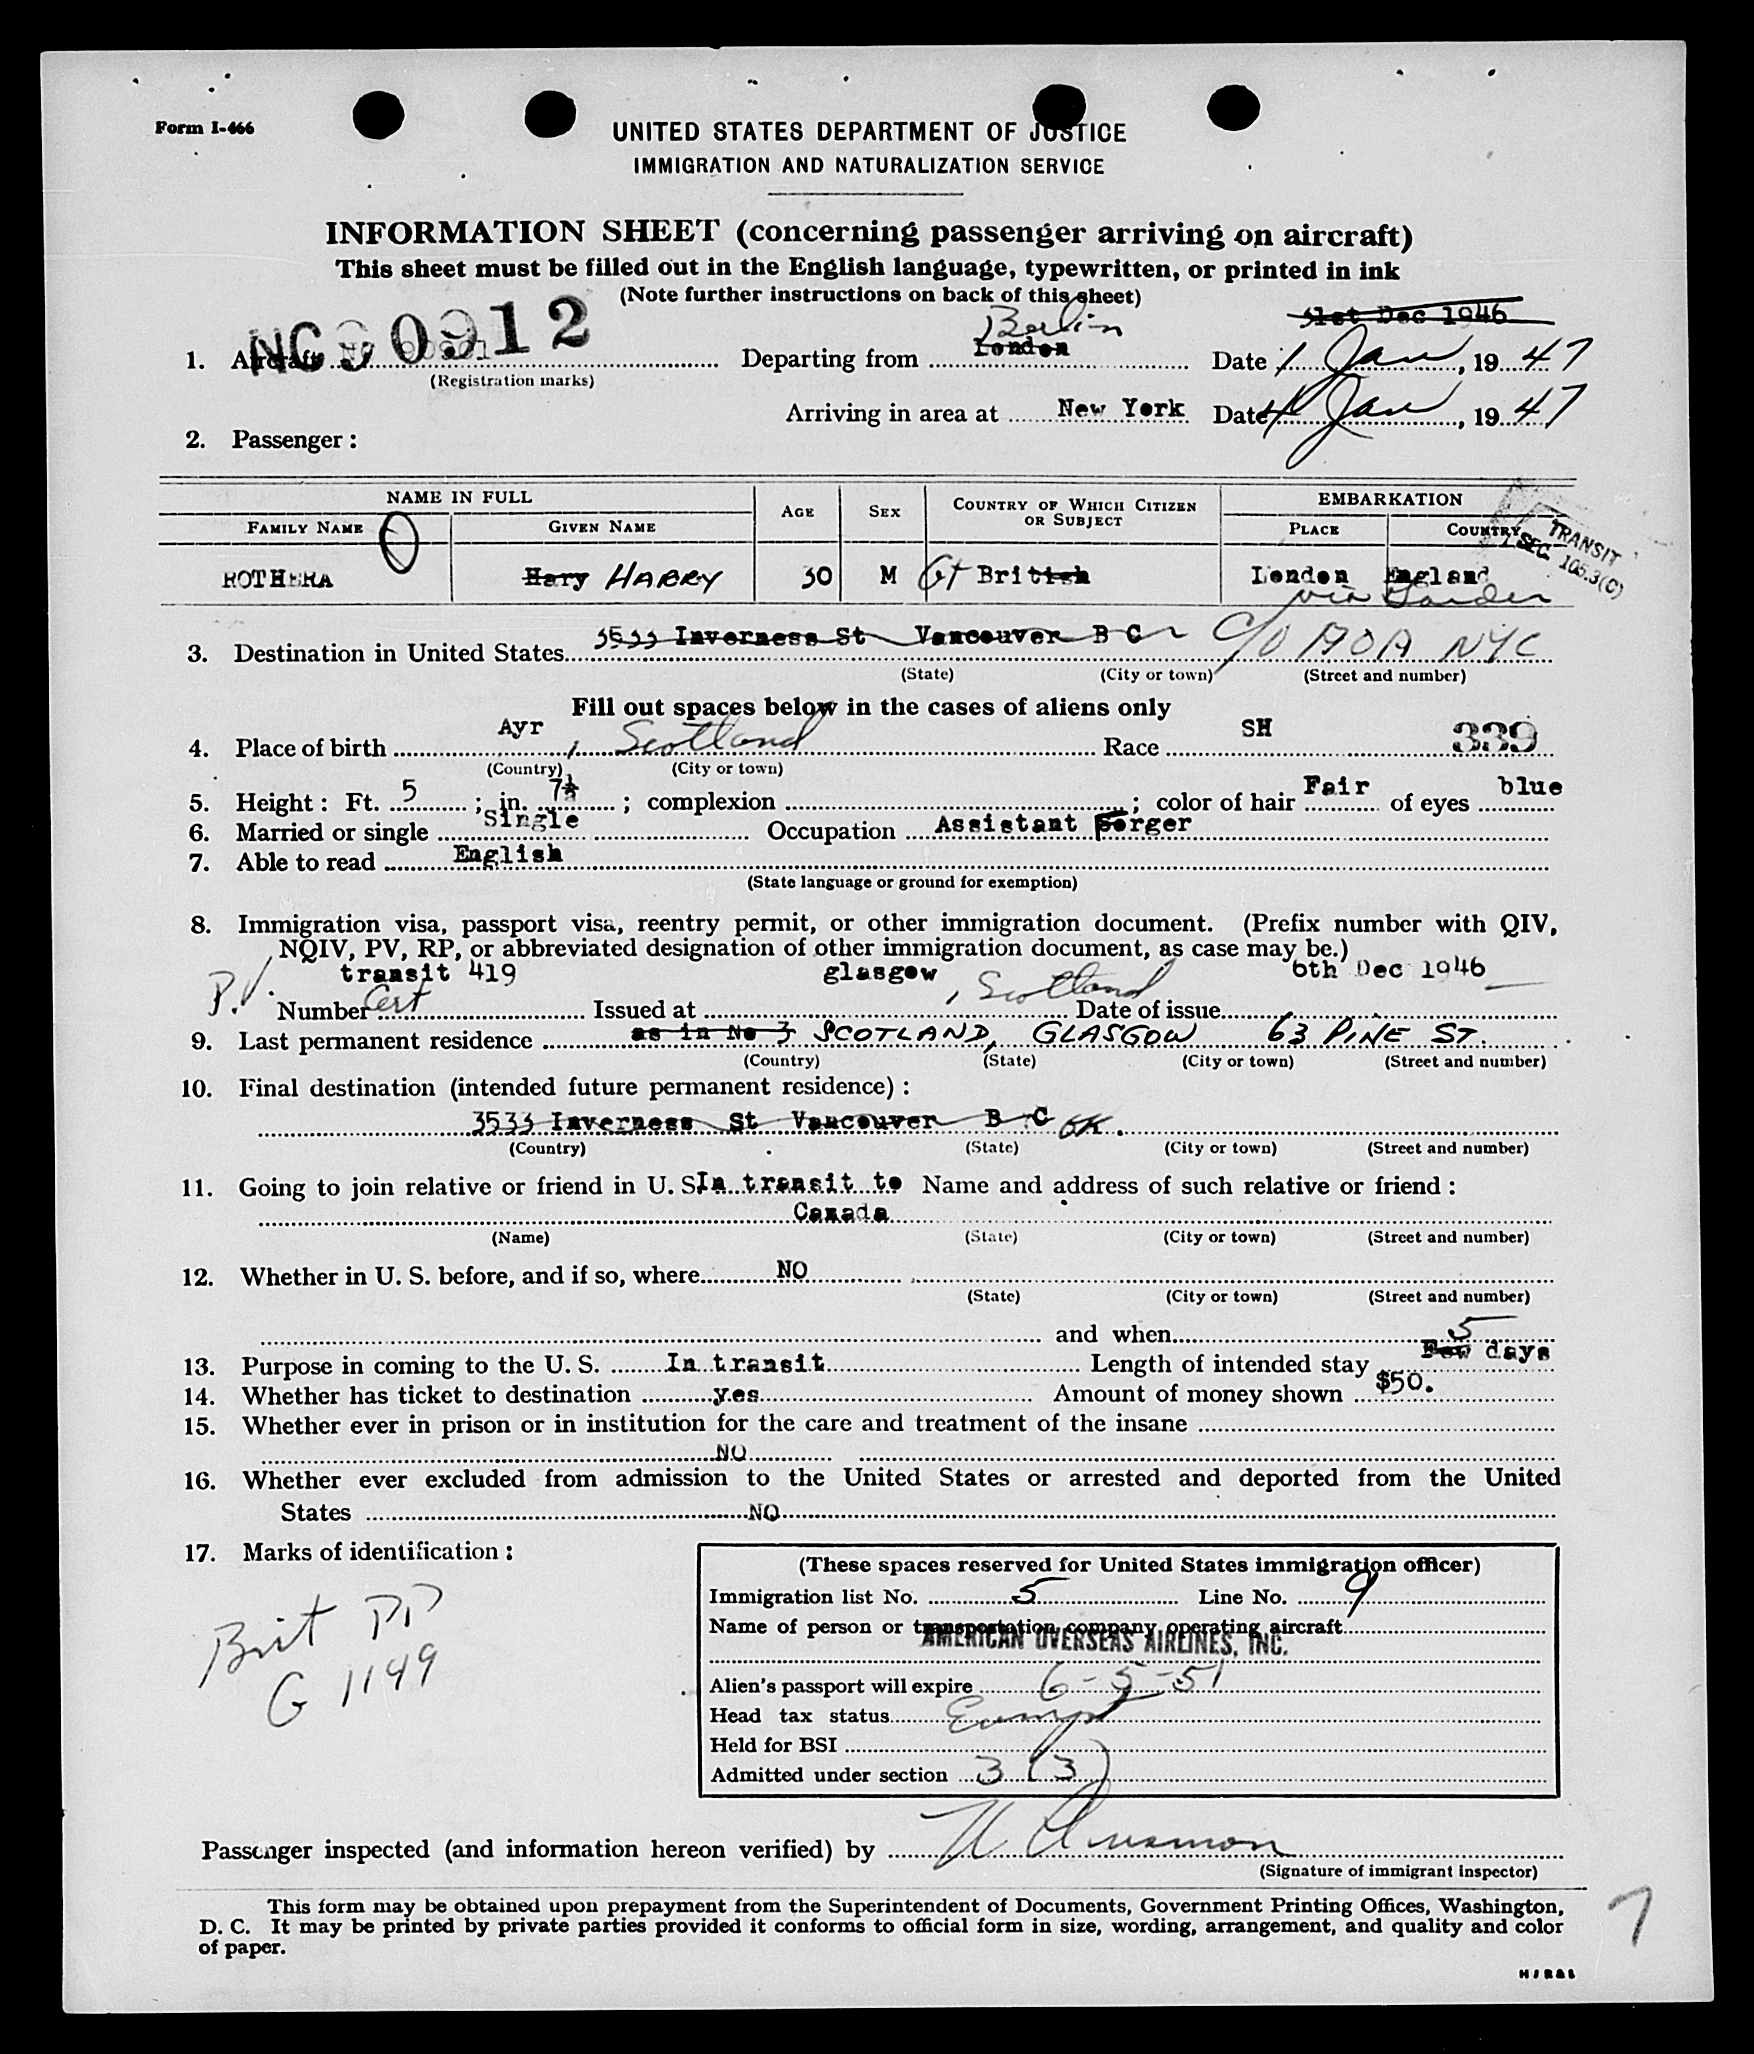 Form I-466
UNITED STATES DEPARTMENT OF JUSTICE
IMMIGRATION AND NATURALIZATION SERVICE
INFORMATION SHEET (concerning passenger arriving on aircraft)
This sheet must be filled out in the English language, typewritten, or printed in ink
(Note further instructions on back of this sheet)
Berlin
31st Dec 1946
1. Aircraft NC 90912 Departing from London Date 1 Jan, 1947
(Registration marks)
Arriving in area at New York Date 4 Jan, 1947
2. Passenger:
NAME IN FULL AGE SEX COUNTRY OF WHICH CITIZEN OR SUBJECT EMBARKATION
FAMILY NAME GIVEN NAME PLACE COUNTRY
TRANSIT SEC. 105.3(C)
ROTHERA Hary HARRY 30 M Gt British London England
via
3. Destination in United States 3533 Inverness St Vancouver B C c/o AOA NYC
(State) (City or town) (Street and number)
Fill out spaces below in the cases of aliens only
4. Place of birth Ayr, Scotland Race SH 339
(Country) (City or town)
5. Height: Ft. 5; in. 7½; complexion ; color of hair Fair of eyes blue
6. Married or single Single Occupation Assistant Forger
7. Able to read English
(State language or ground for exemption)
8. Immigration visa, passport visa, reentry permit, or other immigration document. (Prefix number with QIV,
NQIV, PV, RP, or abbreviated designation of other immigration document, as case may be.)
transit 419 glasgow 6th Dec 1946
P.V. Number Cert Issued at , Scotland Date of issue
9. Last permanent residence as in No 3 SCOTLAND, GLASGOW 63 PINE ST.
(Country) (State) (City or town) (Street and number)
10. Final destination (intended future permanent residence):
3533 Inverness St Vancouver B C OK.
(Country) (State) (City or town) (Street and number)
11. Going to join relative or friend in U. S. In transit to Name and address of such relative or friend:
Canada
(Name) (State) (City or town) (Street and number)
12. Whether in U. S. before, and if so, where NO
(State) (City or town) (Street and number)
and when
5
13. Purpose in coming to the U. S. In transit Length of intended stay Few days
14. Whether has ticket to destination yes Amount of money shown $50.
15. Whether ever in prison or in institution for the care and treatment of the insane
NO
16. Whether ever excluded from admission to the United States or arrested and deported from the United
States NO
17. Marks of identification:
Brit PP
G 1149
(These spaces reserved for United States immigration officer)
Immigration list No. 5 Line No. 9
Name of person or transportation company operating aircraft
AMERICAN OVERSEAS AIRLINES, INC.
Alien's passport will expire 6-5-51
Head tax status Exempt
Held for BSI
Admitted under section 3 (3)
Passenger inspected (and information hereon verified) by
(Signature of immigrant inspector)
This form may be obtained upon prepayment from the Superintendent of Documents, Government Printing Offices, Washington,
D. C. It may be printed by private parties provided it conforms to official form in size, wording, arrangement, and quality and color
of paper.
7